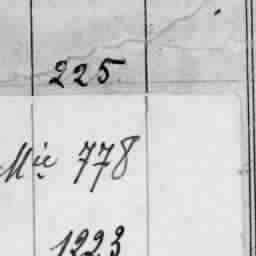 225
Mie 778
1223